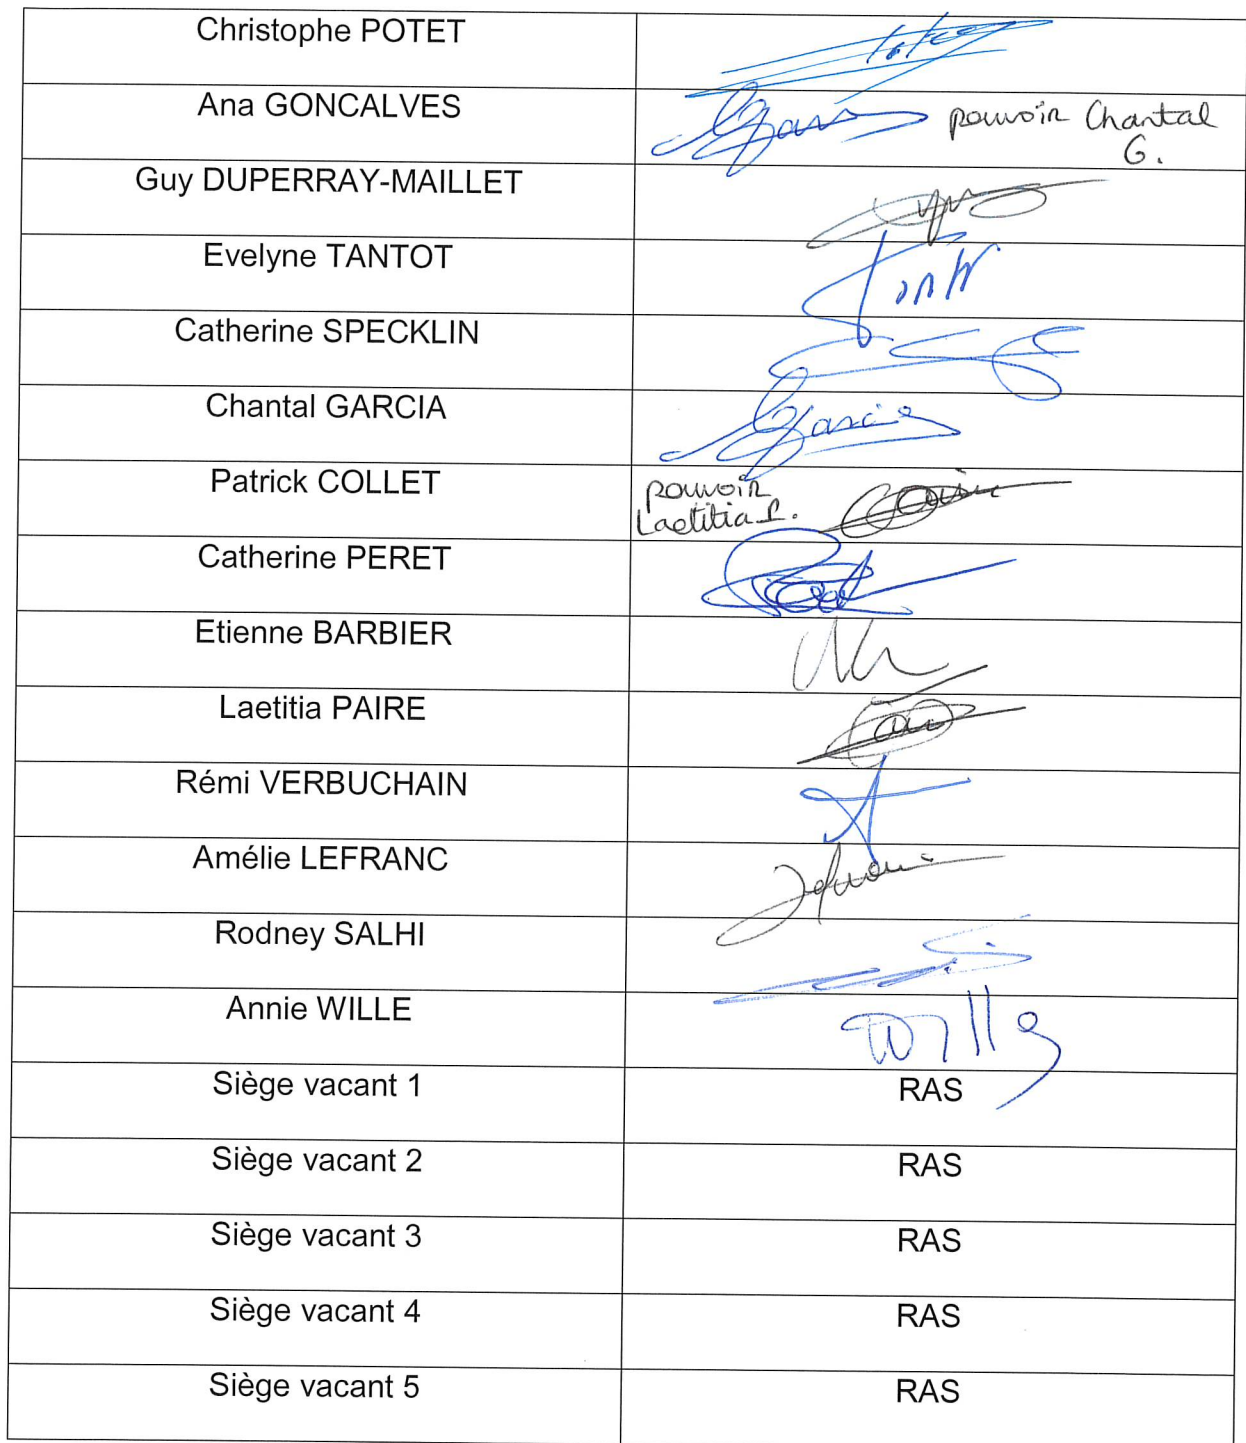 Christophe POTET
Ana GONCALVES
pouvoir Chantal
G.
Guy DUPERRAY-MAILLET
Evelyne TANTOT
Catherine SPECKLIN
Chantal GARCIA
Garcia
Patrick COLLET
pouvoir
Laetitia P.
Catherine PERET
Etienne BARBIER
Laetitia PAIRE
Rémi VERBUCHAIN
Amélie LEFRANC
Rodney SALHI
Annie WILLE
Wille
Siège vacant 1 RAS
Siège vacant 2 RAS
Siège vacant 3 RAS
Siège vacant 4 RAS
Siège vacant 5 RAS